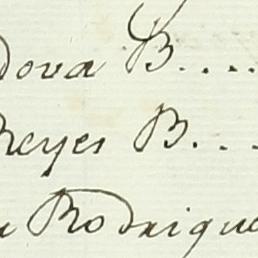 dova B....
Reyes B...
a Rodrigue